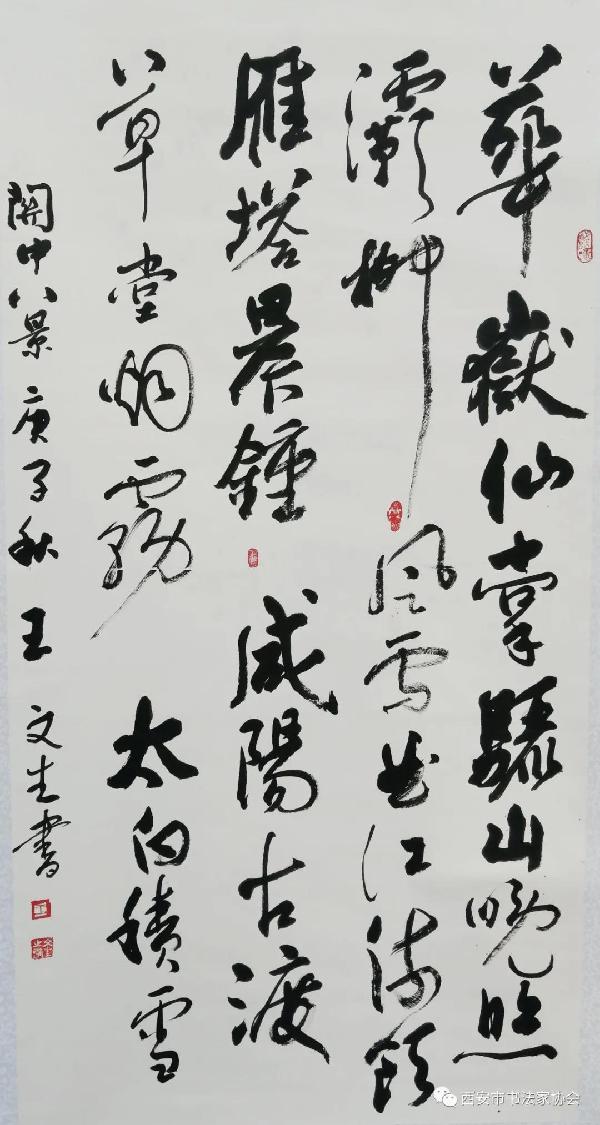 華嶽仙掌驪山晚照
灞柳風雪曲江流飲
雁塔晨鍾咸陽古渡
草堂烟霧太白積雪
關中八景庚子秋王文生書
西安市书法家协会